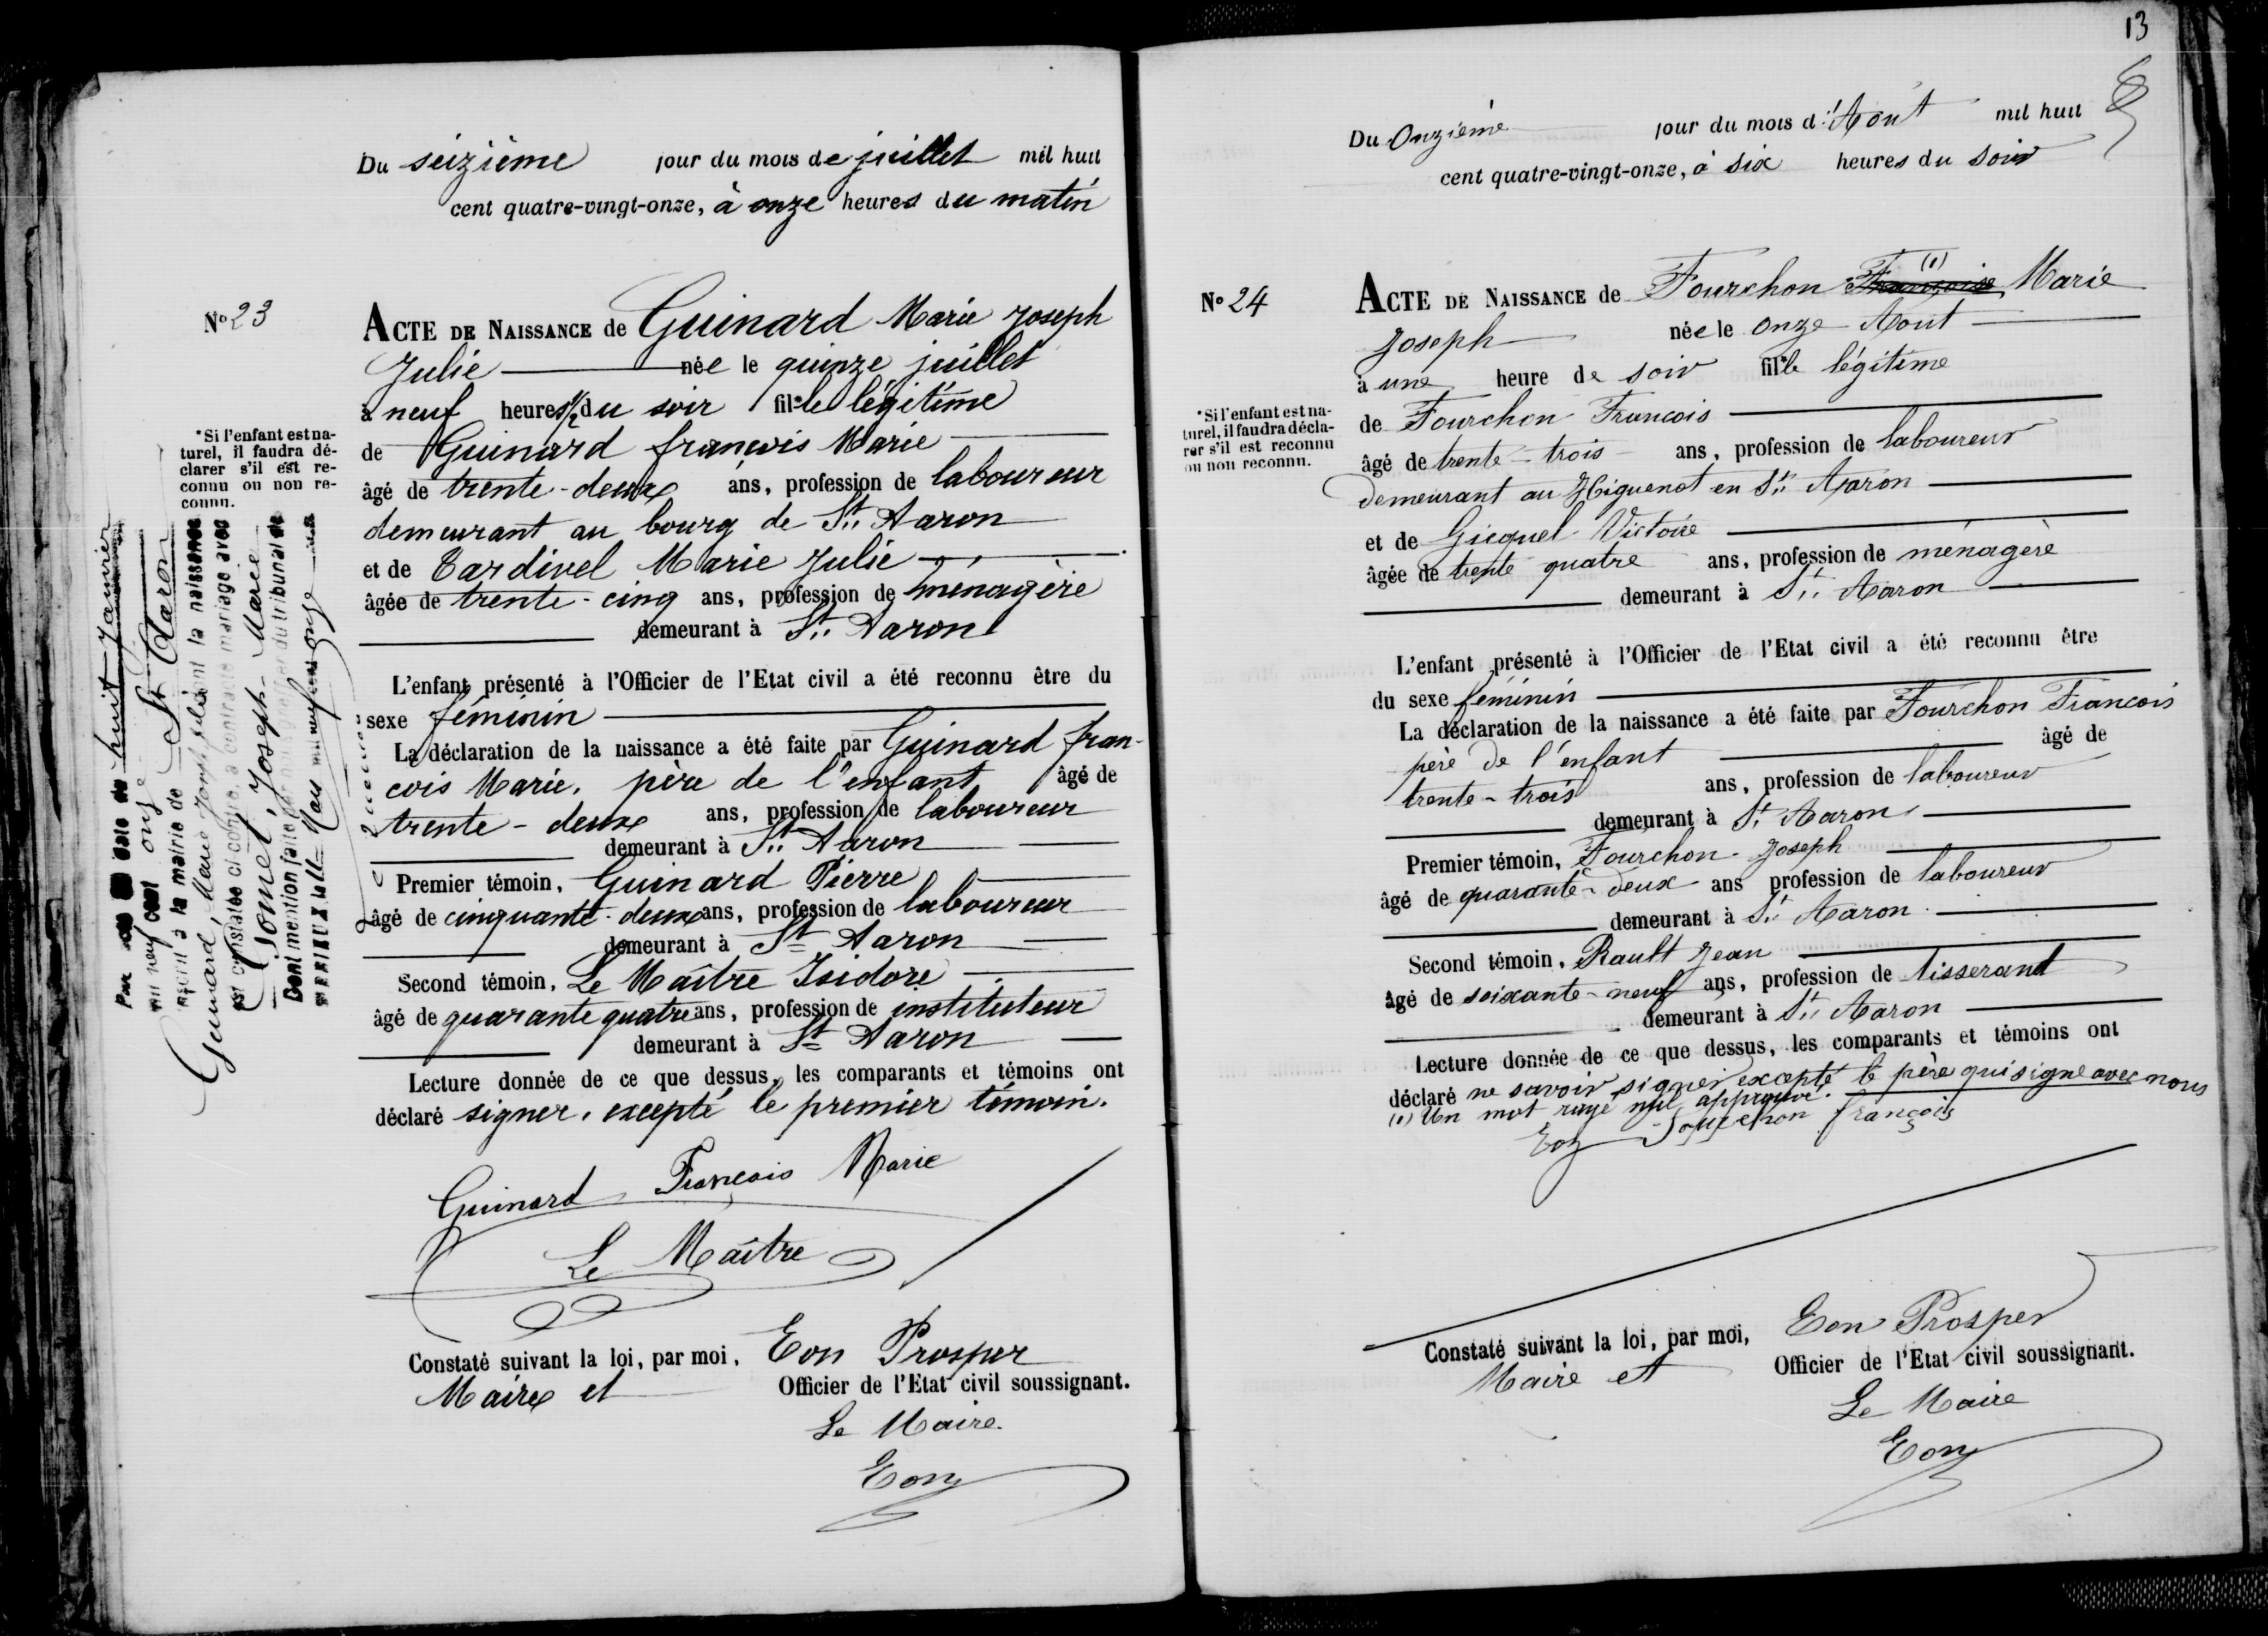 Du seizième jour du mois de juillet mil huit
cent quatre-vingt-onze, à onze heures du matin
N° 23
ACTE DE NAISSANCE de Guinard Marie Joseph
Julie née le quinze juillet
à neuf heures 1/2 du soir fille légitime
*Si l'enfant est na-
turel, il faudra dé-
clarer s'il est re-
connu ou non re-
connu.
de Guinard françois Marie
âgé de trente-deux ans, profession de laboureur
demeurant au bourg de St. Aaron
et de Tardivel Marie Julie
âgée de trente-cinq ans, profession de ménagère
demeurant à St. Aaron
L'enfant présenté à l'Officier de l'Etat civil a été reconnu être du
sexe féminin
La déclaration de la naissance a été faite par Guinard fran-
cois Marie, père de l'enfant âgé de
trente-deux ans, profession de laboureur
demeurant à St. Aaron
Premier témoin, Guinard Pierre
âgé de cinquante-deux ans, profession de laboureur
demeurant à St Aaron
Second témoin, Le Maître Isidore
âgé de quarante quatre ans, profession de instituteur
demeurant à St Aaron
Lecture donnée de ce que dessus, les comparants et témoins ont
déclaré signer, excepté le premier témoin.
Guinard François Marie
Le Maître
Constaté suivant la loi, par moi, Eon Prosper
Maire et Officier de l'Etat civil soussignant.
Le Maire
Eon
Par date du huit janvier
mil neuf cent onze
inscrit à la mairie de St Aaron
Guinard, Marie Joseph Julie dont la naissance
est constatée ci contre, a contracté mariage avec
Jomel, Joseph-Marie
Dont mention faite du tribunal de
St BRIEUX le 11 Mars mil neuf cent onze
13
Du Onzième jour du mois d'Août mil huit
cent quatre-vingt-onze, à six heures du soir
N° 24
ACTE DE NAISSANCE de Fourchon (1) Françoise Marie
Joseph née le onze Aout
à une heure de soir fille légitime
*Si l'enfant est na-
turel, il faudra décla-
rer s'il est reconnu
ou non reconnu.
de Fourchon Francois
âgé de trente-trois ans, profession de laboureur
demeurant au Higuenot en St. Aaron
et de Gicquel Victoire
âgée de trente quatre ans, profession de ménagère
demeurant à St. Aaron
L'enfant présenté à l'Officier de l'Etat civil a été reconnu être
du sexe féminin
La déclaration de la naissance a été faite par Fourchon Francois
père de l'enfant âgé de
trente-trois ans, profession de laboureur
demeurant à St. Aaron
Premier témoin, Fourchon Joseph
âgé de quarante-deux ans profession de laboureur
demeurant à St. Aaron
Second témoin, Rault Jean
âgé de soixante-neuf ans, profession de tisserand
demeurant à St. Aaron
Lecture donnée de ce que dessus, les comparants et témoins ont
déclaré ne savoir signer excepté le père qui signe avec nous
(1) Un mot rayé nul approuvé.
Eon Fourchon françois
Constaté suivant la loi, par moi, Eon Prosper
Maire et Officier de l'Etat civil soussignant.
Le Maire
Eon